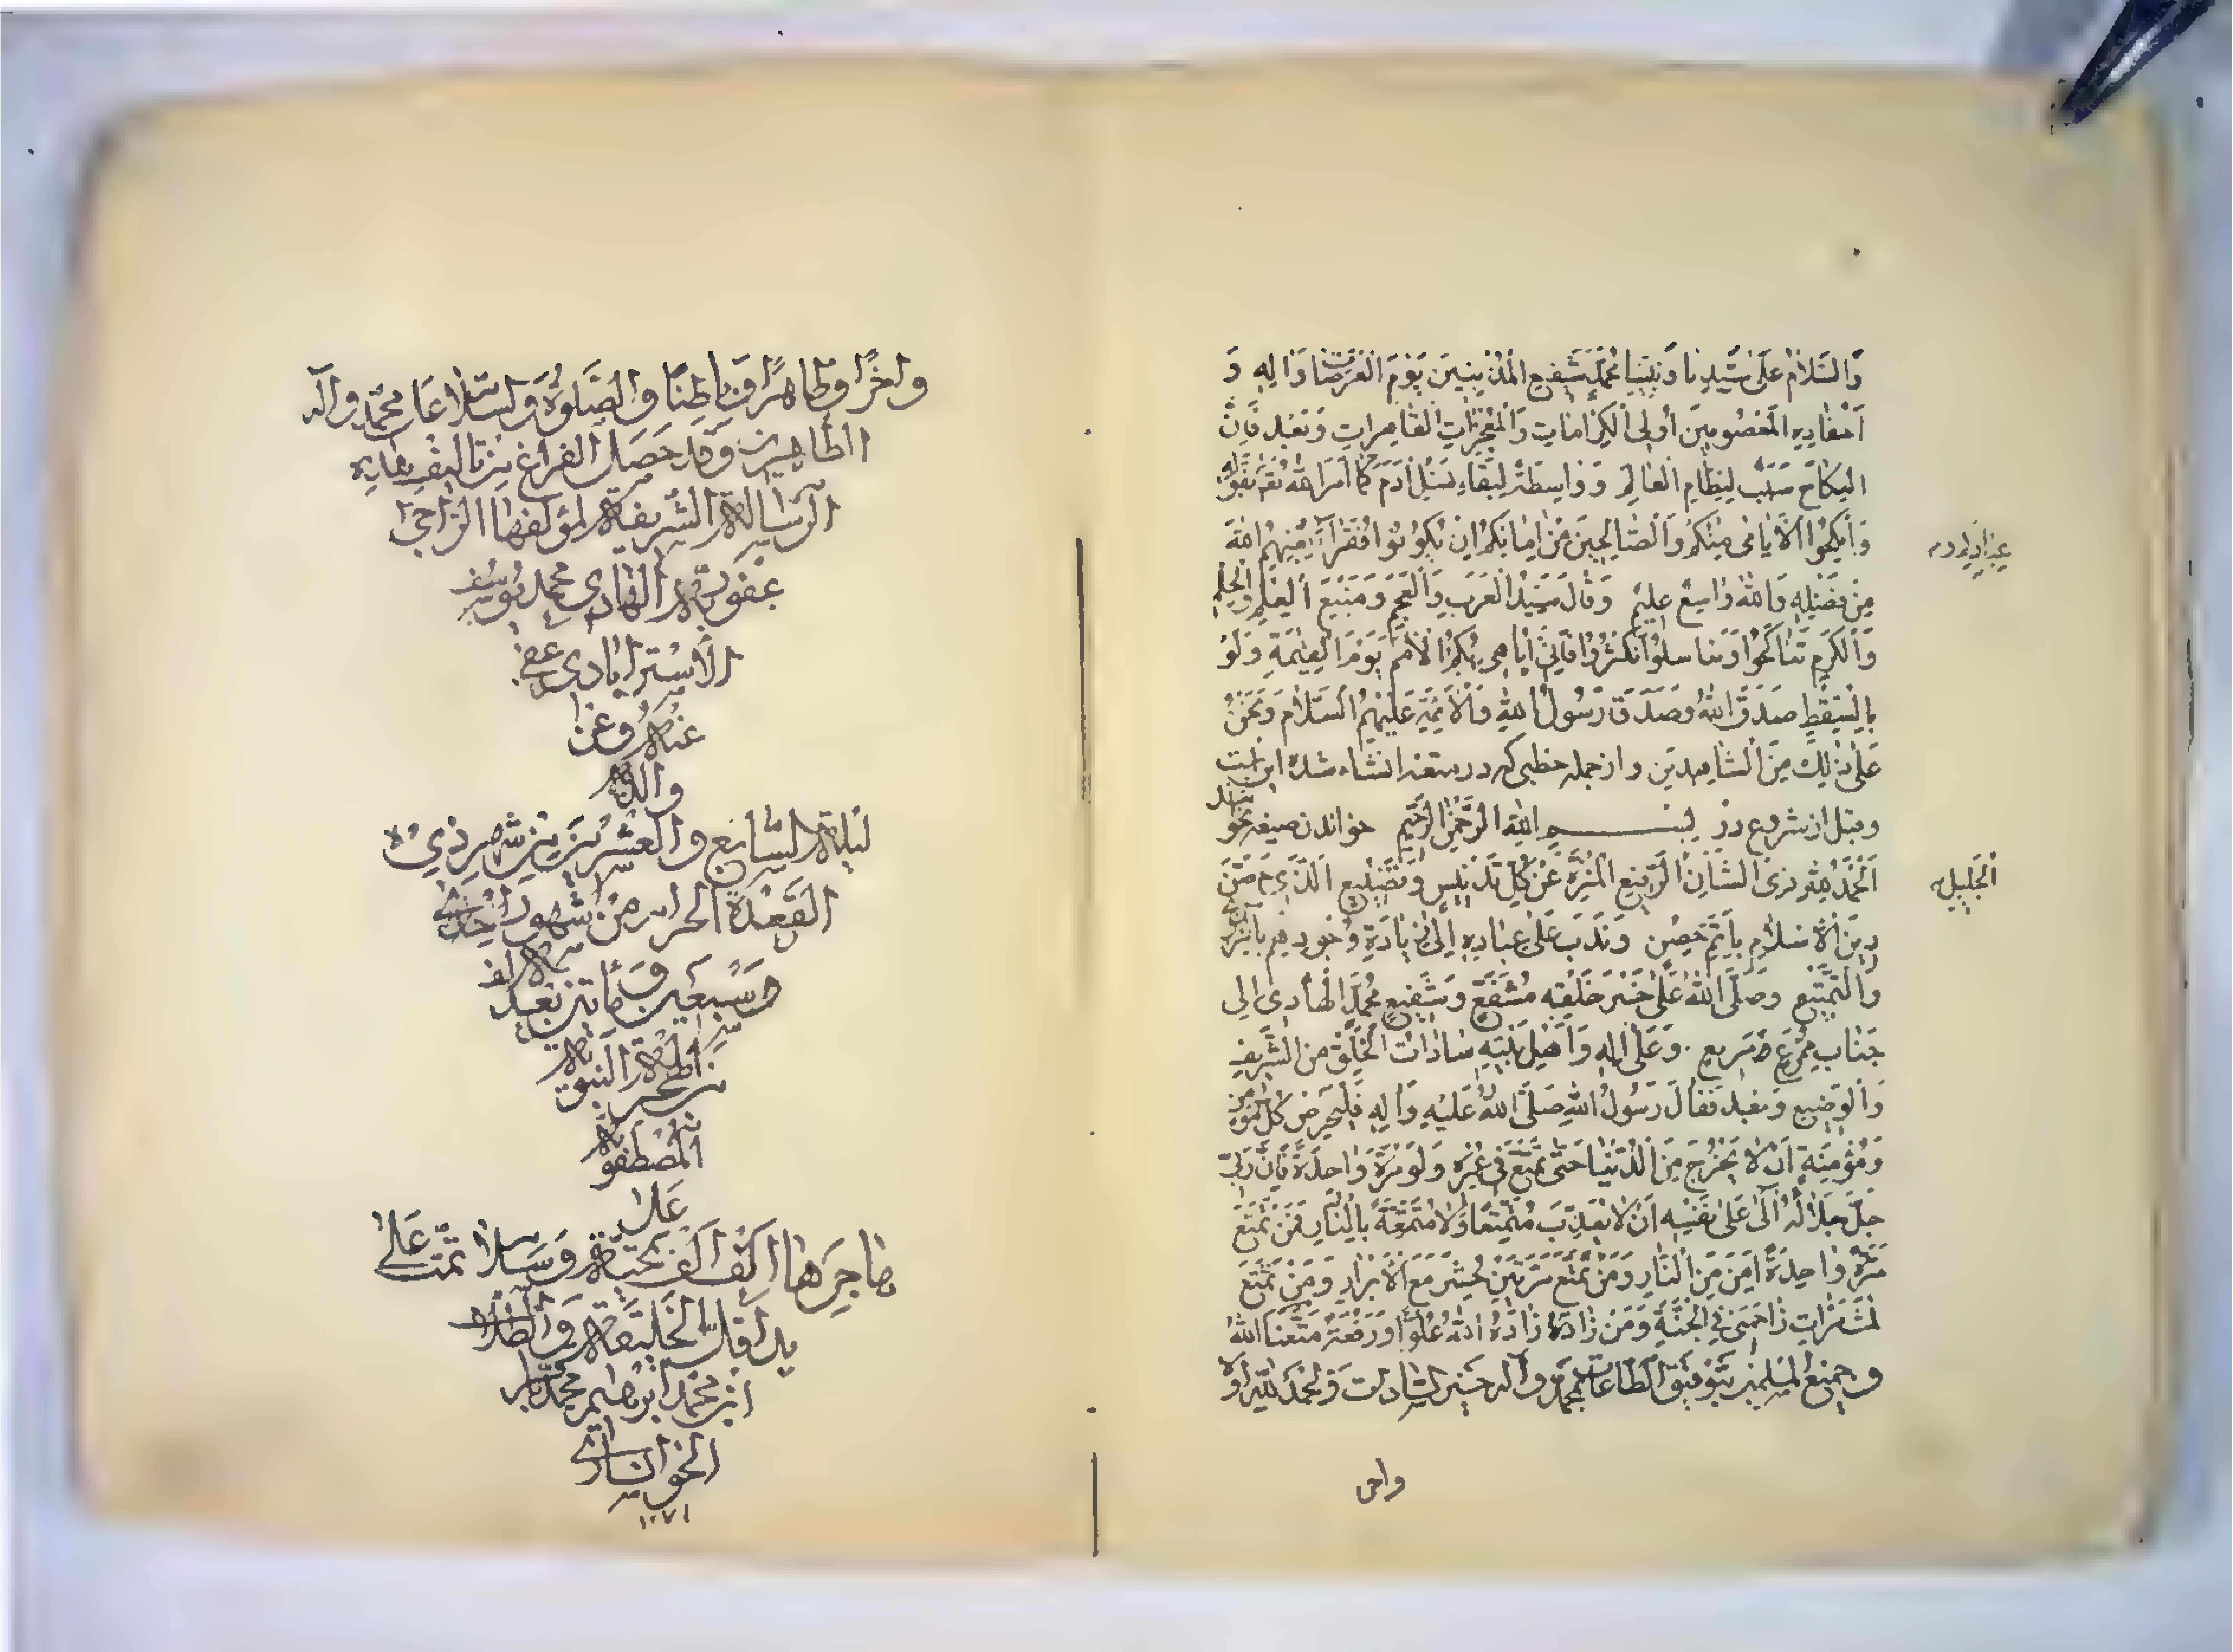 وَالسَّلامُ عَلى سَيِّدِنا وَنَبِيِّنا مُحَمَّدٍ شَفيعِ المُذْنِبينَ يَوْمَ العَرَصاتِ وَالِهِ وَ
اَحْفادِهِ المَعْصُومينَ اُولِى الكَراماتِ وَالمُعْجِزاتِ القاهِراتِ وَبَعْدُ فَاِنَّ
النِكاحَ سَبَبٌ لِنِظامِ العالَمِ وَواسِطَةٌ لِبَقاءِ نَسْلِ ادَمَ كَما اَمَرَ اللهُ بِقَوْلِهِ
وَاَنْكِحُوا الْاَيامى مِنْكُمْ وَالصّالِحينَ مِنْ اِمائِكُمْ اِنْ يَكُونُوا فُقَراءَ يُغْنِهِمُ اللهُ
مِنْ فَضْلِهِ وَاللهُ واسِعٌ عَليمٌ وَقالَ سَيِّدُ العَرَبِ وَالعَجَمِ وَمَنْبَعُ العِلْمِ وَالحِلْمِ
وَالكَرَمِ تَناكَحُوا وَتَناسَلُوا تَكْثُرُوا فَاِنّى اُباهى بِكُمُ الْاُمَمَ يَوْمَ القِيمَةِ وَلَوْ
بِالسِّقْطِ صَدَقَ اللهُ وَصَدَقَ رَسُولُ اللهِ وَالْاَئِمَّةِ عَلَيْهِمُ السَّلامُ وَنَحْنُ
عَلى ذلِكَ مِنَ الشّاهِدينَ وازجمله خطبى كه درمتعه انشاء شده اين است
وقبل ازشروع در بِسْمِ اللهِ الرَّحْمنِ الرَّحيمِ خواندن صيغه بخوانند
اَلْحَمْدُ لِلّهِ ذِى الشَّانِ الرَّفيعِ المُنَزَّهِ عَنْ كُلِّ تَدْنيسٍ الَّذى
الجليل
دينَ الْاِسْلامِ وَنَدَبَ عَلى عِبادِهِ اِلى
وَالتَّمَتُّعِ وَصَلَّى اللهُ عَلى خَيْرِ خَلْقِهِ مُشَفَّعٍ وَشَفيعٍ مُحَمَّدٍ الْهادى اِلى
جَنابٍ وَعَلى الِهِ وَاَهْلِ بَيْتِهِ ساداتِ الخَلْقِ مِنَ الشَّريفِ
وَالوَضيعِ وَبَعْدُ فَقالَ رَسُولُ اللهِ صَلَّى اللهُ عَلَيْهِ وَالِهِ كُلُّ مُؤْمِنٍ
وَمُؤْمِنَةٍ اَنْ لا يَخْرُجَ مِنَ الدُّنْيا حَتّى يَتَمَتَّعَ فى عُمْرِهِ وَلَوْ مَرَّةً واحِدَةً فَاِنَّ رَبّى
جَلَّ جَلالُهُ آلى عَلى نَفْسِهِ اَنْ لا يُعَذِّبَ مُتَمَتِّعًا وَلا مُتَمَتِّعَةً بِالنّارِ فَمَنْ تَمَتَّعَ
مَرَّةً واحِدَةً اَمِنَ مِنَ النّارِ وَمَنْ تَمَتَّعَ مَرَّتَيْنِ حُشِرَ مَعَ الْاَبْرارِ وَمَنْ تَمَتَّعَ
فِى الجَنَّةِ وَمَنْ زادَهُ زادَهُ اللهُ عُلُوًّا وَرِفْعَةً مَتَّعَنَا اللهُ
وجميع المسلمين بتوفيق الطاعات بمحمد وآله السادات والحمد لله اولا
واخر
واخرًا وظاهرًا وباطنًا والصلوة والسلام على محمد وآله
الطاهرين وقد حصل الفراغ من تاليف هذه
الرسالة الشريفة لمؤلفها الراجى
عفو ربه الهادى محمد يوسف
الاسترابادى عفى
عنه وعن
والديه
ليلة السابع والعشرين من شهر ذى
القعدة الحرام من شهور احدى
وسبعين ومأتين بعد الف
من الهجرة النبوية
المصطفوية
على
هاجرها الف الف تحية وسلام تمت على
يد اقل الخليقة والطلاب
ابن محمد ابرهيم محمد باقر
الخوانسارى
١٢٧١